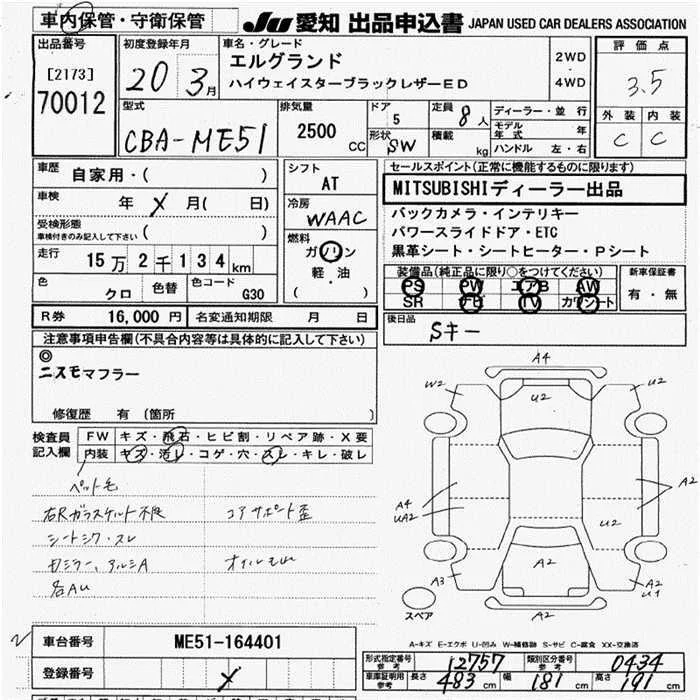 車内保管・守衛保管
JU 愛知 出品申込書 JAPAN USED CAR DEALERS ASSOCIATION
出品番号
[2173]
70012
初度登録年月
20 3月
車名・グレード
エルグランド
ハイウェイスターブラックレザーED
2WD
・
4WD
評価点
3.5
外装 内装
C C
型式
CBA-ME51
排気量
2500 CC
ドア
5
形状
SW
定員
8人
積載 kg
ディーラー・並行
モデル年式 年
ハンドル 左・右
車歴
自家用・( )
車検
年 月( 日)
受検形態
車検付きのみ記入して下さい ( )
走行
15万2千134km
色
クロ
色替
色コード
G30
シフト
AT
冷房
WAAC
燃料
ガソリン
軽・油
( )
セールスポイント(正常に機能するものに限ります)
MITSUBISHIディーラー出品
バックカメラ・インテリキー
パワースライドドア・ETC
黒革シート・シートヒーター・Pシート
装備品(純正品に限り○をつけてください)
PS PW エアB AW
SR ナビ TV カワシート
新車保証書
有・無
R券 16,000円 名変通知期限 月 日
後日品
Sキー
注意事項申告欄(不具合内容等は具体的に記入して下さい)
◎
ニスモマフラー
修復歴 有 (箇所 )
検査員
記入欄
FW キズ・飛石・ヒビ割・リペア跡・X要
内装 キズ・汚レ・コゲ・穴・スレ・キレ・破レ
ペット毛
コアサポート歪
シートシワ・スレ
各AU
A4
W2
U2
U2
A4
UA2
A2
U2
A2
A3
A2
U1
A2
スペア
A-キズ E-エクボ U-凹み W-補修跡 S-サビ C-腐食 XX-交換済
2
車台番号
ME51-164401
登録番号
形式指定番号
参考
12757
類別区分番号
参考
0434
車庫証明用
参考
長さ 483 cm 幅 181 cm 高さ 191 cm